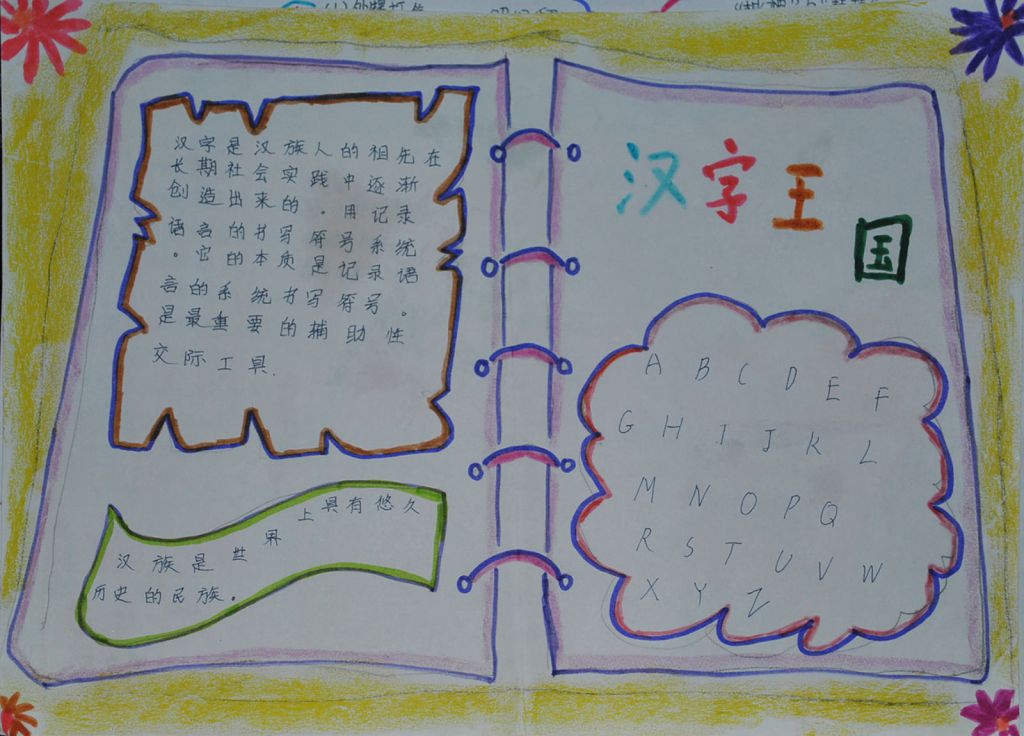 汉字是汉族人的祖先在
长期社会实践中逐渐
创造出来的。用记录
语言的书写符号系统
。它的本质是记录语
言的系统书写符号。
是最重要的辅助性
交际工具.
汉族是世界上具有悠久
历史的民族。
汉字王国
A B C D E F
G H I J K L
M N O P Q
R S T U V W
X Y Z